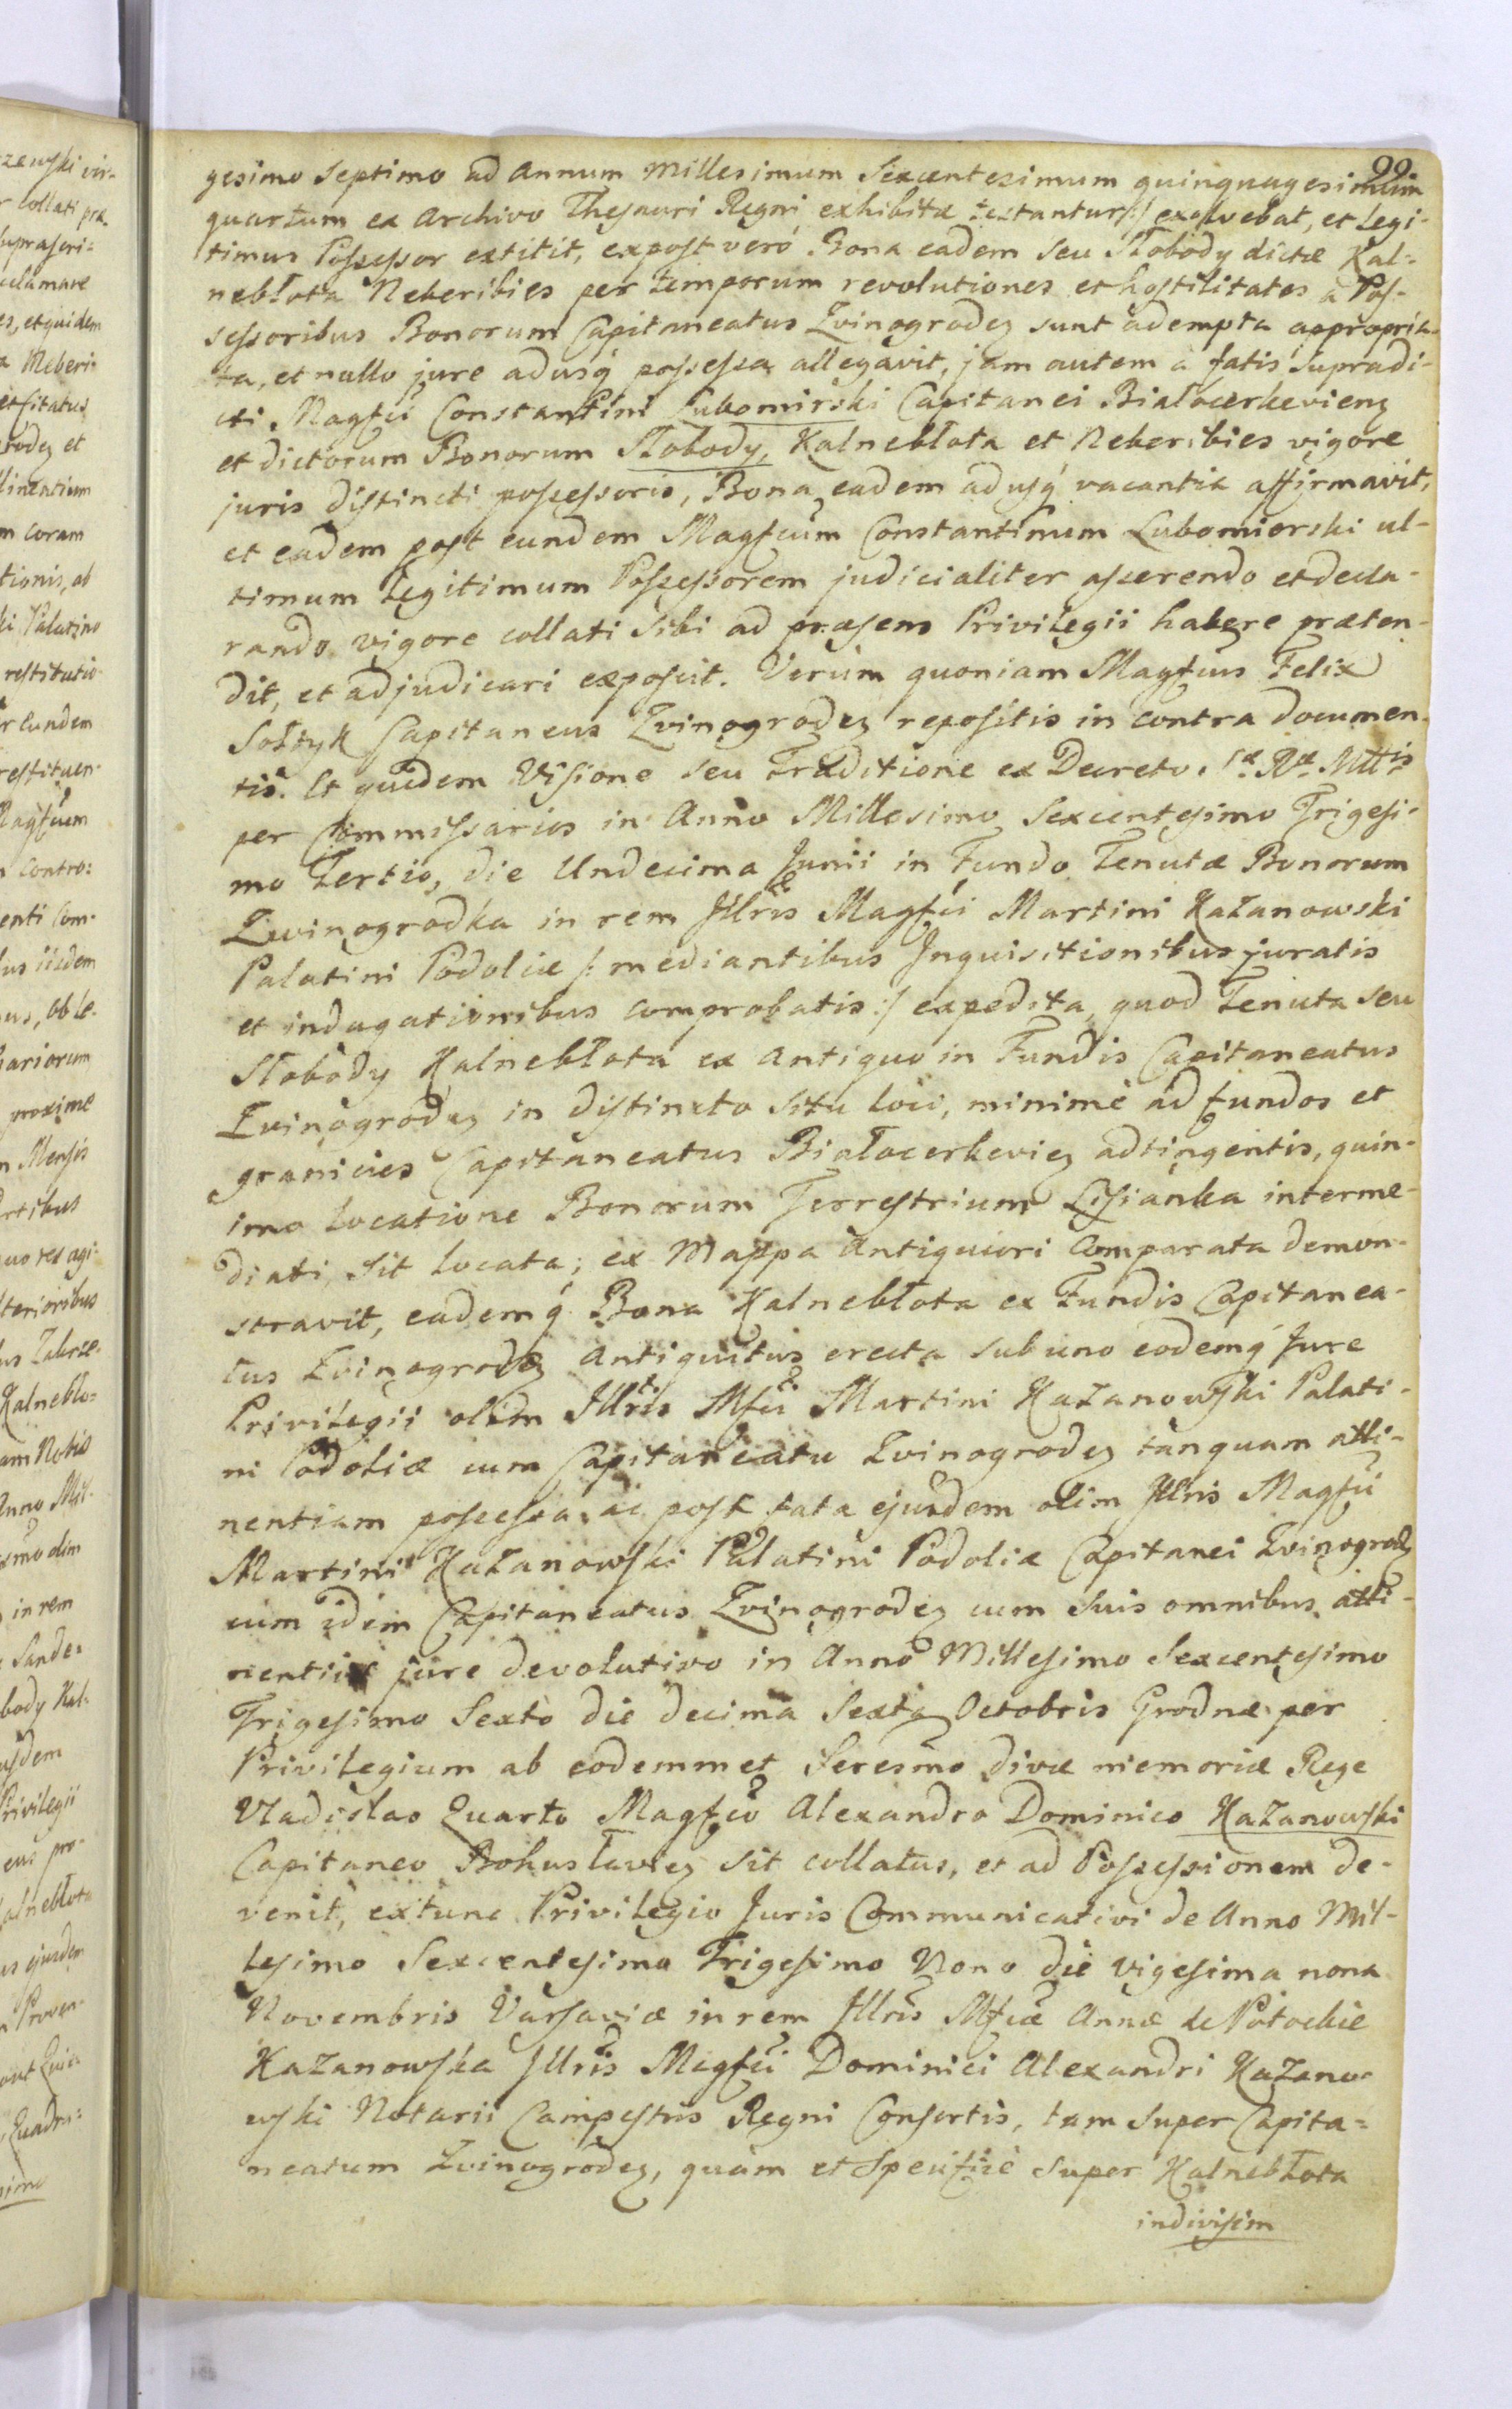 99
gesimo Septimo ad Annum Millesimum Sexcentesimum quinquagesimum
quartum ex Archivo Thesauri Regni exhibitæ testantur:/ exolvebat, et Legi-
timus Possessor extitit, expost verò Bona eadem seu Słobody dictæ Kal-
nebłota Neberibies per temporum revolutiones et hostilitates à Pos-
sessoribus Bonorum Capitaneatus Zvinogrodeń sunt adempta appropria-
ta, et nullo jure adusq́ possessa allegavit, jam autem à fatis supradi-
cti Magfci Constantini Lubomirski Capitanei Białocerkevieną
et dictorum Bonorum Słobody, Kalnebłota et Neberibies vigore
juris distincti possessoris, Bona eadem adusq́ vacantia affirmavit,
et eadem post eundem Magfcum Constantinum Lubomierski ul-
timum Legitimum Possessorem judicialiter asserendo et decla-
rando vigore collati sibi ad præsens Privilegii habere præten-
dit, et adjudicari exposcit. Verùm quoniam Magfcus Felix
Sołtyk Capitaneus Zvinogrodeń repositis in contra documen-
tis. Et quidem Visione seu Traditione ex Decreto Sæ Ræ Mttis
per Commissarios in Anno Millesimo Sexcentesimo Trigesi-
mo Tertio, die Undecima Junii in Fundo Tenutæ Bonorum
Zwinogrodka in rem Jllris Magfci Martini Kazanowski
Palatini Podoliæ /: mediantibus Inquisitionibus juratis
et indagationibus comprobatis:/ expedita, quod Tenuta seu
Słobody Kalnebłota ex antiquo in Fundis Capitaneatus
Zvinogrodeń in distincto situ loci, minimè ad fundos et
granicies Capitaneatus Białocerkevień adtingentis, quin-
imo locatione Bonorum Terrestrium Lisianka interme-
diati, sit locata; ex Mappa antiquiori Comparata demon-
stravit, eademq́ Bona Kalnebłota ex Fundis Capitanea-
tus Zvinogrodeń Antiquitus erecta sub uno eodemq́ Jure
Privilegii olim Jllris Mfci Martini Kazanowski Palati-
ni Podoliæ cum Capitaneatu Zvinogrodeń tanquam atti-
nentiam possessa, ac post fata ejusdem olim Jllris Magfci
Martini Kazanowski Palatini Podoliæ Capitanei Zvinogrodeń
cum idem Capitaneatus Zvinogrodeń cum suis omnibus atti-
nentiis jure devolutivo in Anno Millesimo Sexcentesimo
Trigesimo Sexto die decima Sexta Octobris Grodnæ per
Privilegium ab eodemmet Seresmo divæ memoriæ Rege
Vladislao Quarto Magfco Alexandro Dominico Kazanowski
Capitaneo Bohuslavień sit collatus, et ad Possessionem de-
venit, extunc Privilegio Juris Communicativi de Anno Mil-
lesimo Sexcentesimo Trigesimo Nono die vigesima nona
Novembris Varsaviæ in rem Jllris Mfcæ Annæ de Potockie
Kazanowska Jllris Magfci Dominici Alexandri Kazano-
wski Notarii Campestris Regni Consortis, tam super Capita=
neatum Zvinogrodeń, quàm et Specificè super Kalnebłota
indivisim